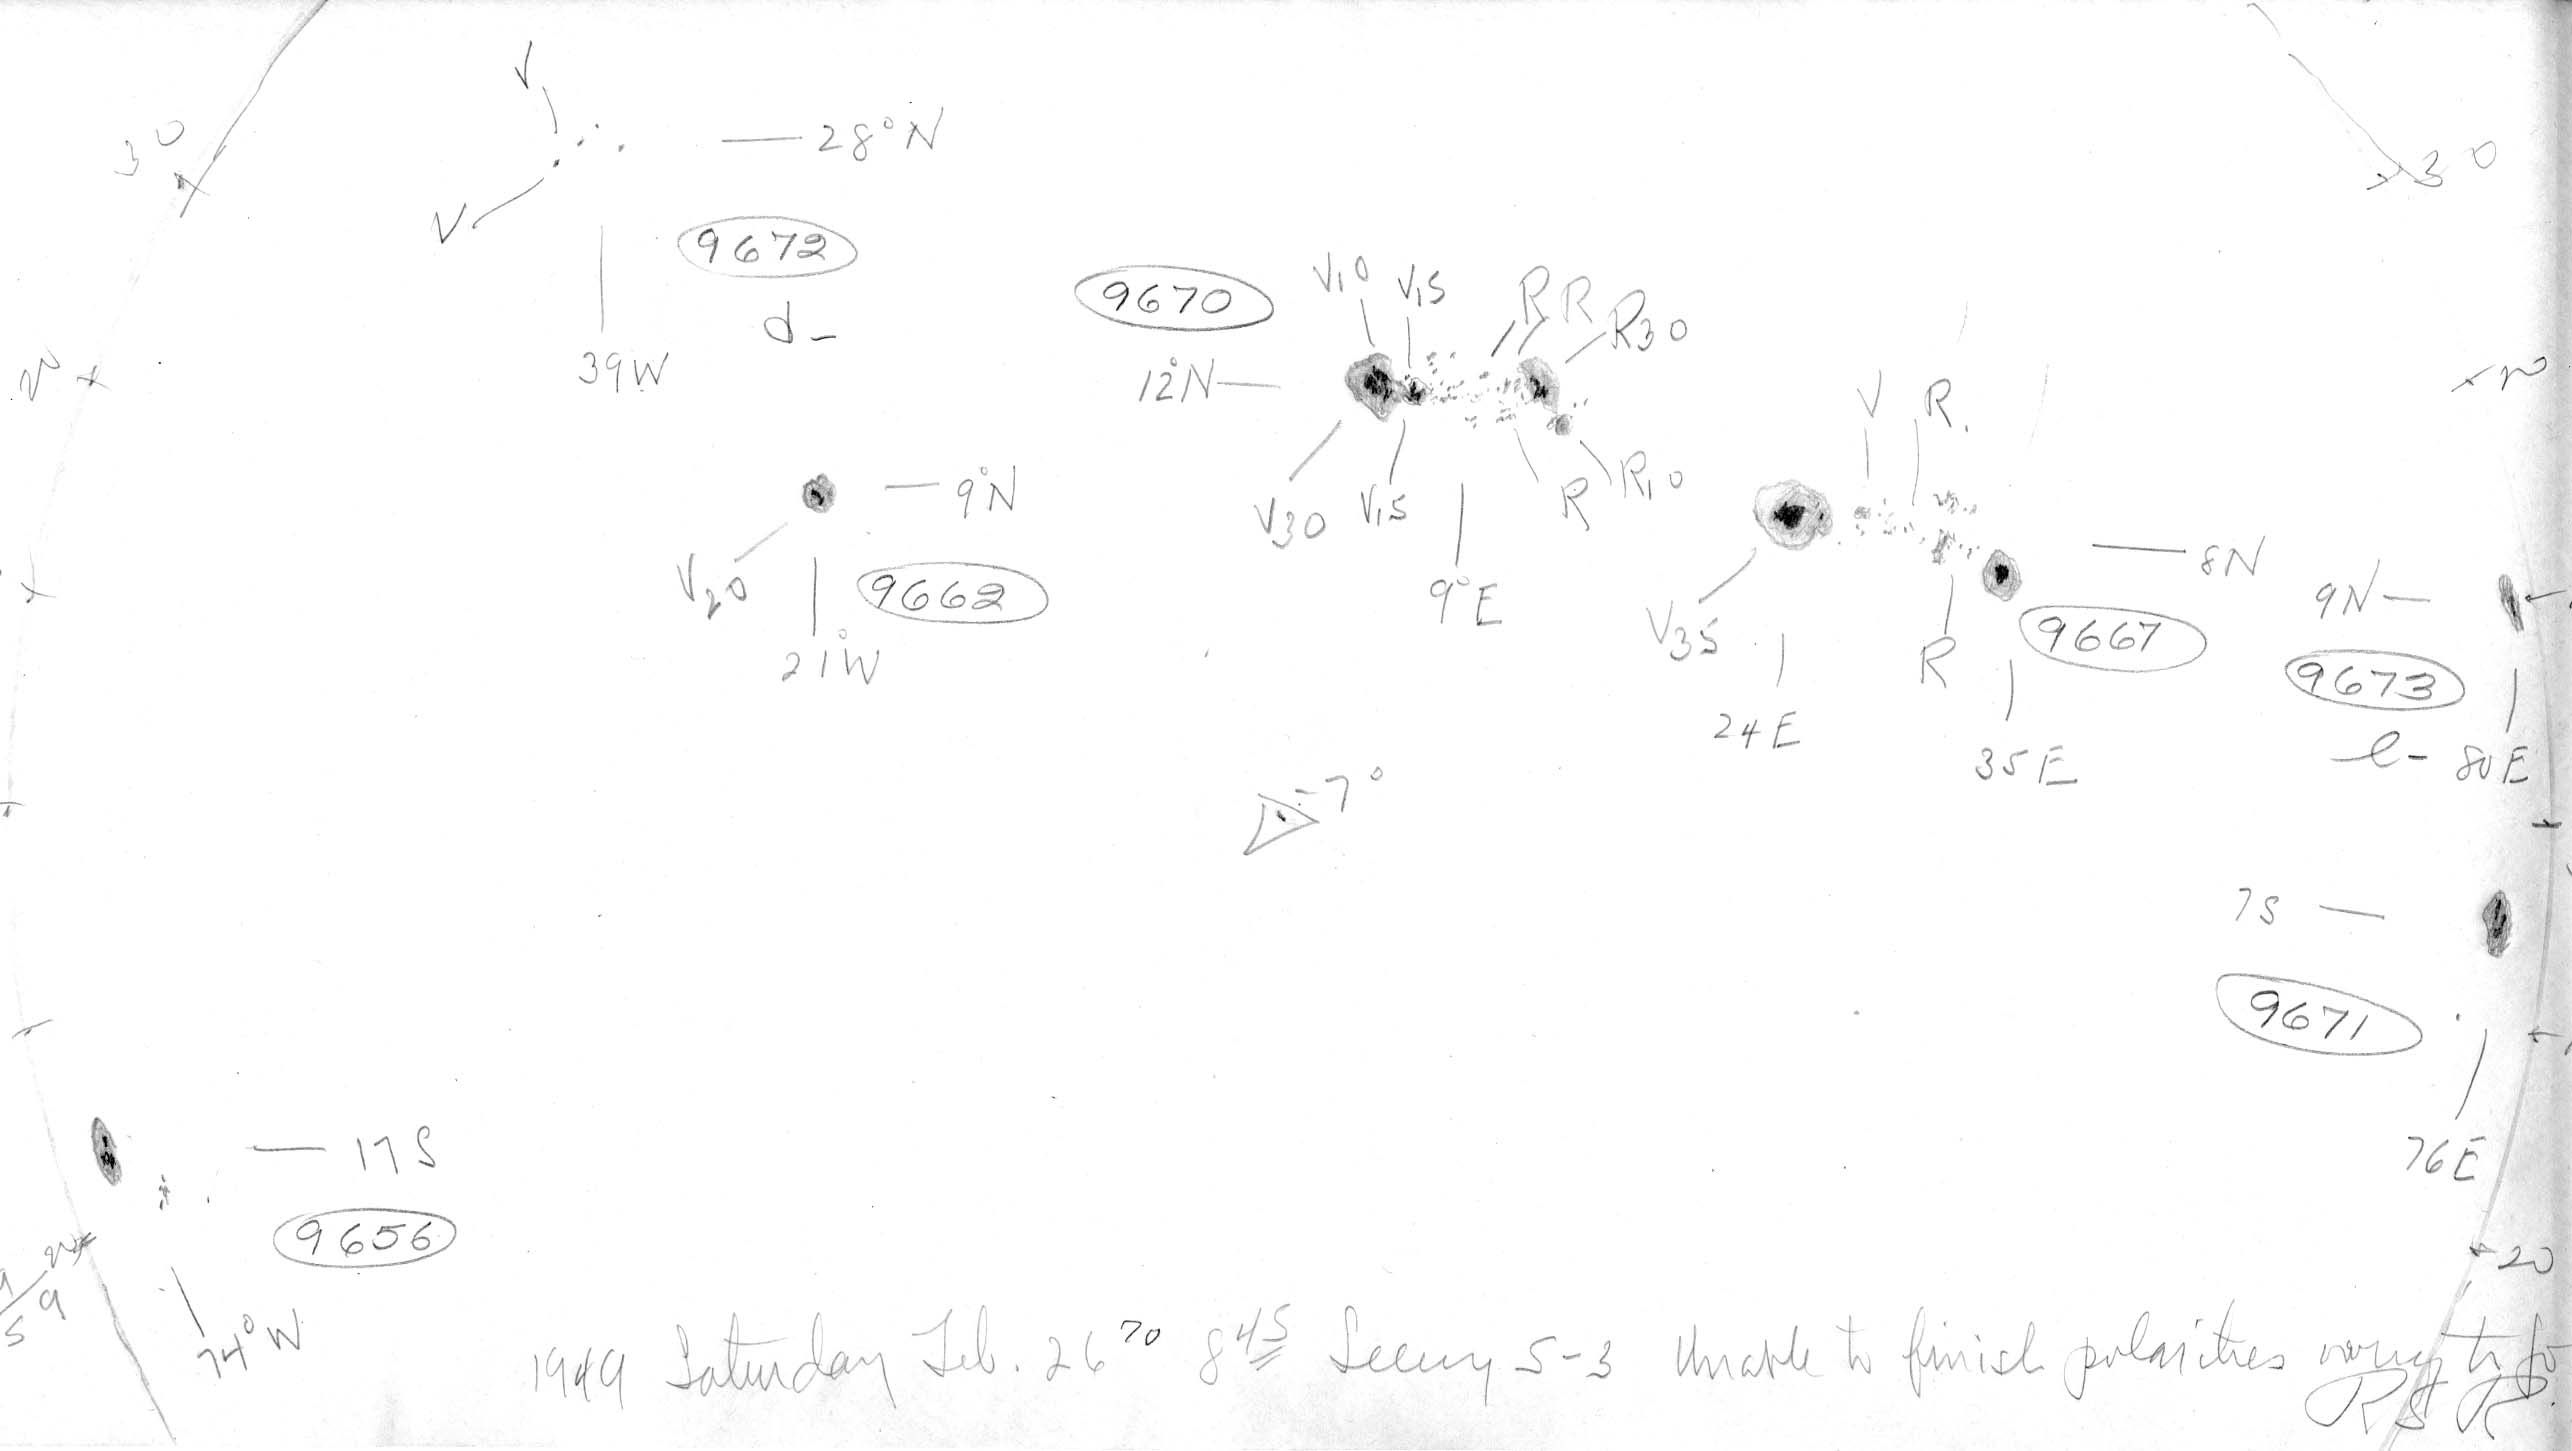 V
30
28°N
30
V
9672
d-
39W
20
20
9670
V10
V15
R
R
R30
12°N
V30
V15
R
R10
9°E
9°N
V20
9662
21°W
V
R
8N
V35
9667
R
24E
35E
9N
9673
l-
80E
-7°
7S
9671
76E
17S
9656
20
74°W
20
1949 Saturday Feb. 26 70 8 45 Seeing 5-3 Unable to finish polarities owing to fo